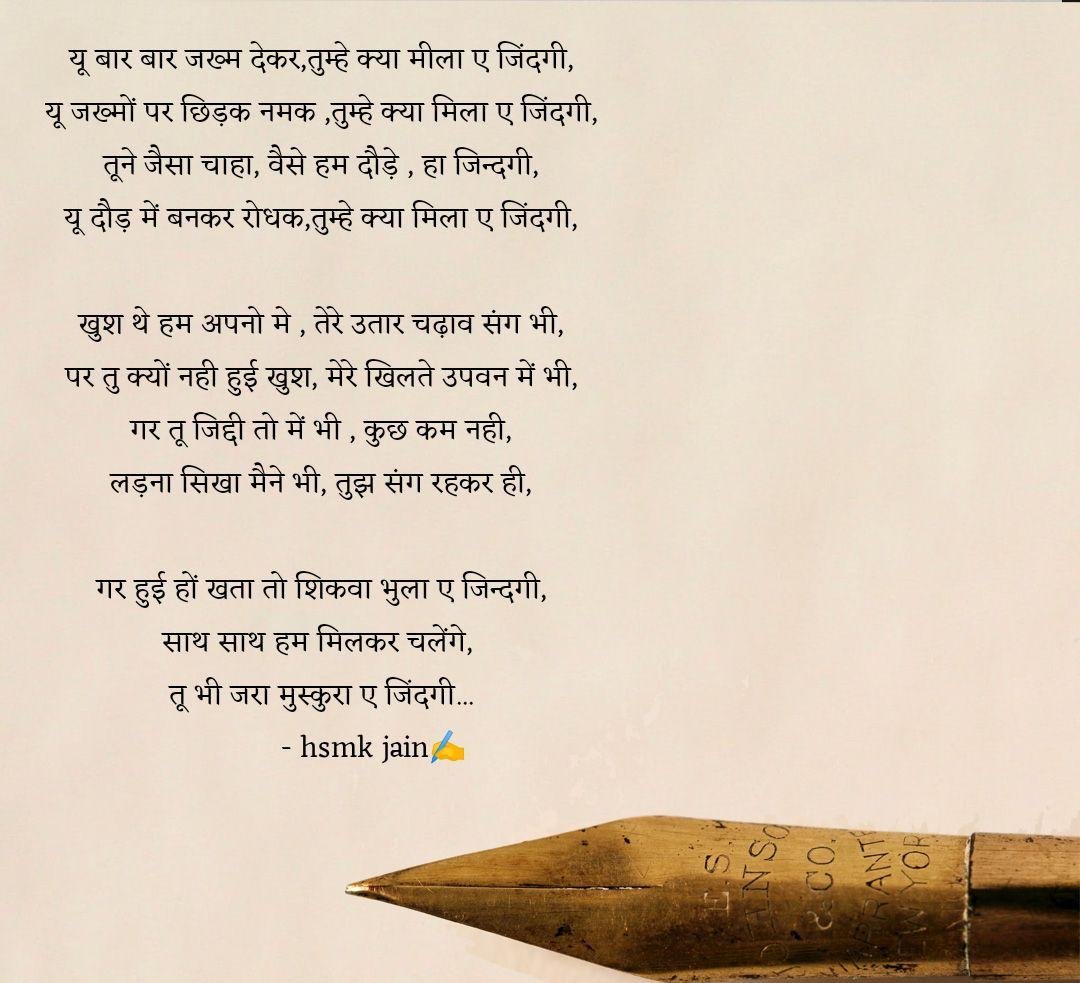 यू बार बार जख्म देकर,तुम्हे क्या मीला ए जिंदगी,
यू जख्मों पर छिड़क नमक ,तुम्हे क्या मिला ए जिंदगी,
तूने जैसा चाहा, वैसे हम दौड़े , हा जिन्दगी,
यू दौड़ में बनकर रोधक,तुम्हे क्या मिला ए जिंदगी,
खुश थे हम अपनो मे , तेरे उतार चढ़ाव संग भी,
पर तु क्यों नही हुई खुश, मेरे खिलते उपवन में भी,
गर तू जिद्दी तो में भी , कुछ कम नही,
लड़ना सिखा मैने भी, तुझ संग रहकर ही,
गर हुई हों खता तो शिकवा भुला ए जिन्दगी,
साथ साथ हम मिलकर चलेंगे,
तू भी जरा मुस्कुरा ए जिंदगी...
- hsmk jain✍️
E.S.
& CO.